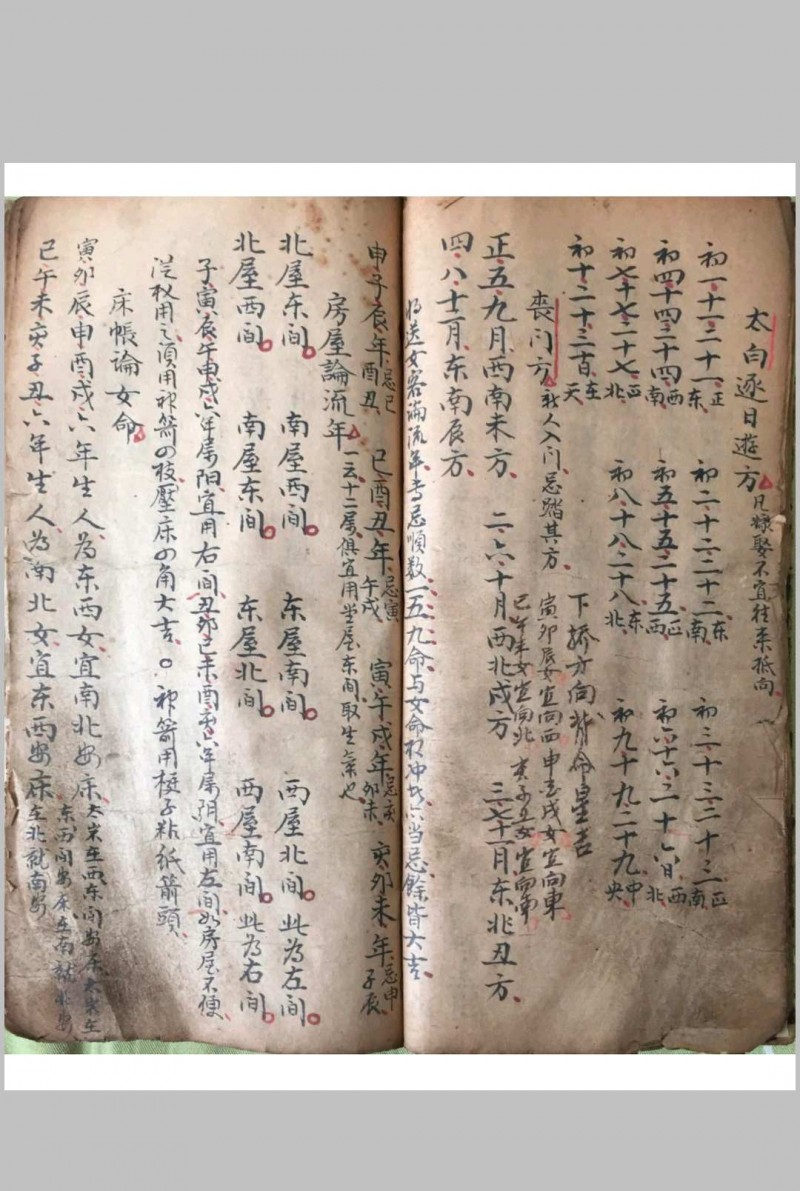 太白逐日遊方 凡嫁娶不宜往来抵向
初一十一二十一正东 初二十二二十二东南 初三十三二十三正南
初四十四二十四西南 初五十五二十五正西 初六十六二十六日西北
初七十七二十七正北 初八十八二十八东北 初九十九二十九中央
初十二十三百在天 下轿方向背命星吉
喪门方 新人入门忌踏其方 寅卯辰女宜向西 申酉戌女宜向東 巳午未女宜向北 亥子丑女宜向南
正五九月西南未方 二六十月西北戌方 三七十一月东北丑方
四八十二月东南辰方
送女客論流年 忌順数一五九命与女命相冲 当忌餘皆大吉
申子辰年忌巳酉丑 巳酉丑年忌寅午戌 寅午戌年忌亥卯未 亥卯未年忌申子辰
房屋論流年 一云十二屬俱宜用堂屋东间取生氣也
北屋东间 南屋西间 东屋南间 西屋北间 此为左间
北屋西间 南屋东间 东屋北间 西屋南间 此为右间
子寅辰午申戌六年屬阳宜用右间丑卯巳未酉亥六年屬阴宜用左间如房屋不便
從权用之須用神箭四枝壓床四角大吉 神箭用梗子粘纸箭頭
床帳論女命
寅卯辰申酉戌六年生人为东西女宜南北安床
巳午未亥子丑六年生人为南北女宜东西安床